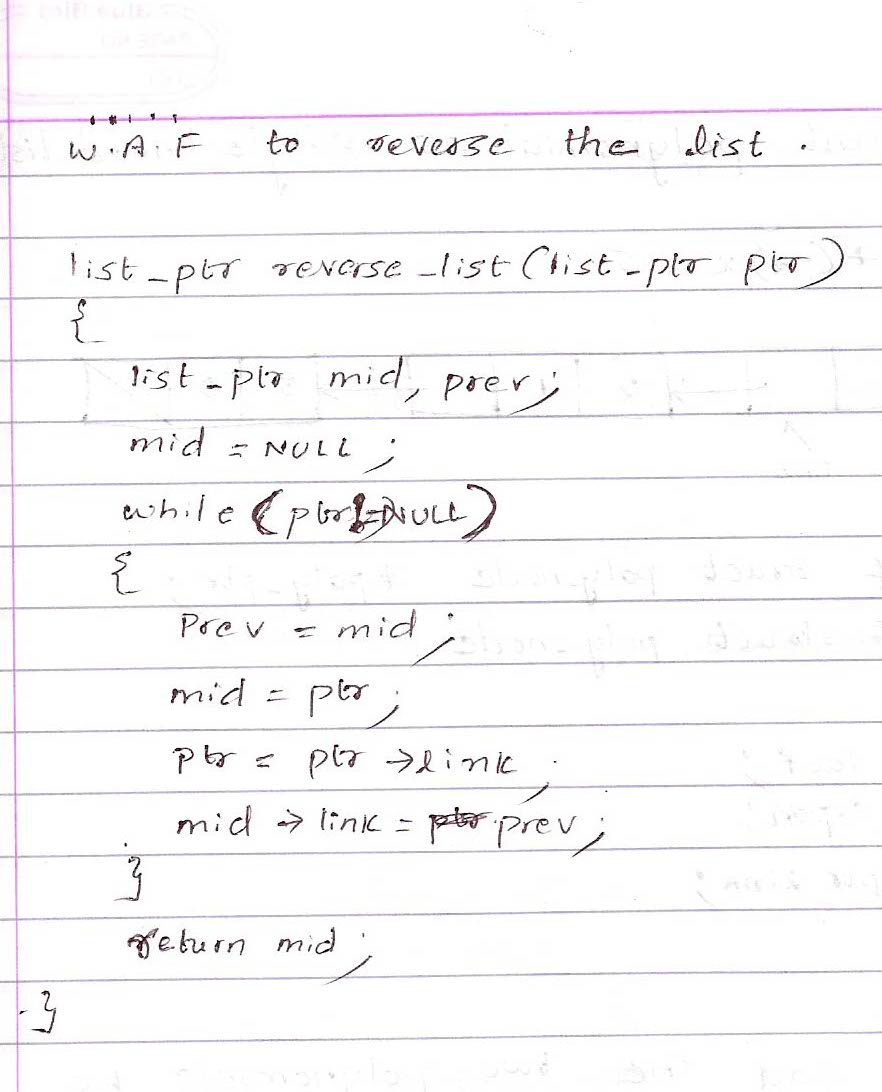 W.A.F to reverse the list.
list_ptr reverse_list(list_ptr ptr)
{
list_ptr mid, prev;
mid = NULL;
while (ptr!=NULL)
{
Prev = mid;
mid = ptr;
ptr = ptr →link;
mid → link = prev;
}
return mid;
}